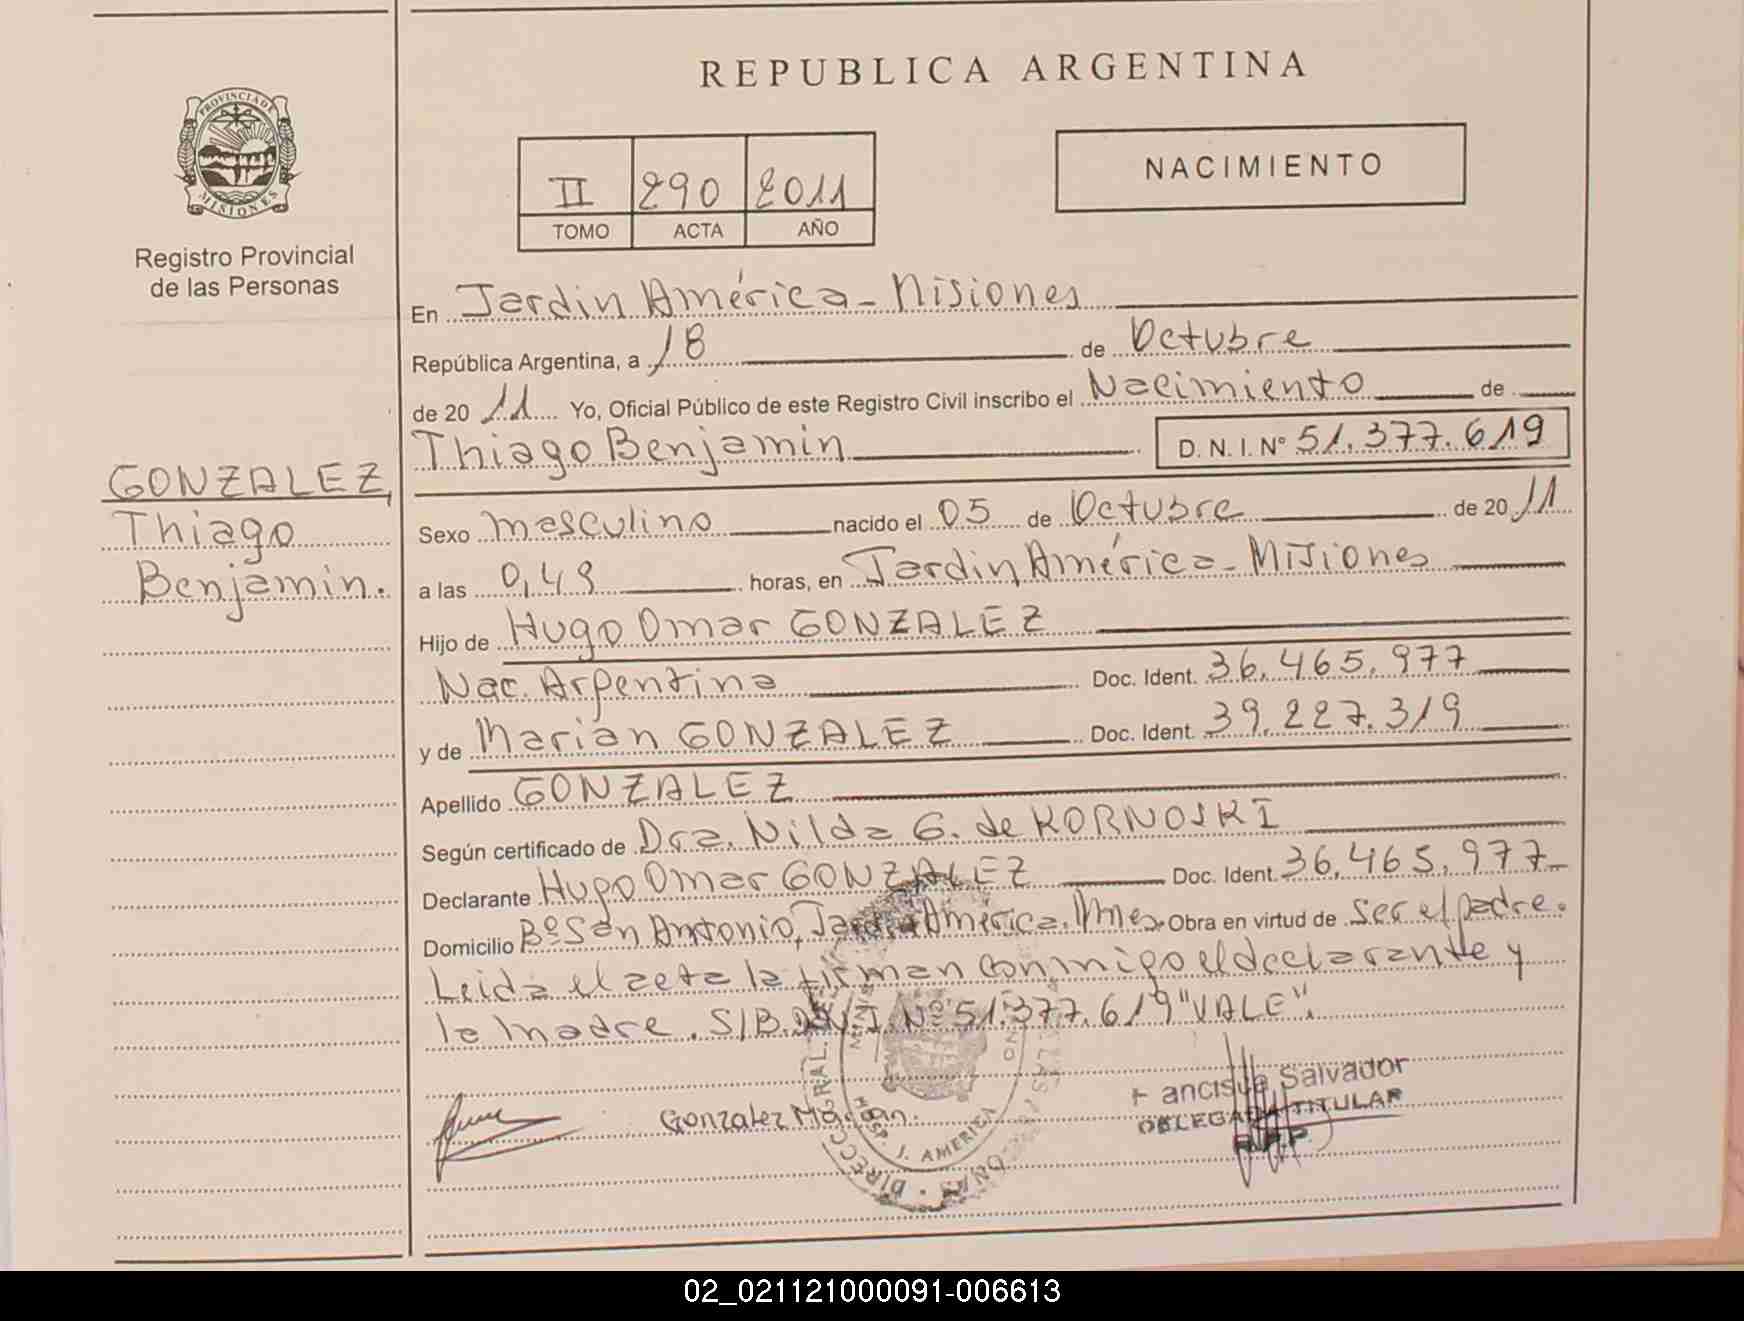 REPUBLICA ARGENTINA
PROVINCIA DE
MISIONES
Registro Provincial
de las Personas
II 290 2011
TOMO ACTA AÑO
NACIMIENTO
GONZALEZ,
Thiago
Benjamin.
En Jardin América - Misiones
República Argentina, a 18 de Octubre
de 20 11 Yo, Oficial Público de este Registro Civil inscribo el Nacimiento de
Thiago Benjamin D. N. I. N° 51.377.619
Sexo masculino nacido el 05 de Octubre de 20 11
a las 0,49 horas, en Jardin América - Misiones
Hijo de Hugo Omar GONZALEZ
Nac. Argentina Doc. Ident. 36.465.977
y de Marian GONZALEZ Doc. Ident. 39.227.319
Apellido GONZALEZ
Según certificado de Dra. Nilda G. de KORNOSKI
Declarante Hugo Omar GONZALEZ Doc. Ident. 36.465.977
Domicilio Bº San Antonio, Jardin América. Mnes. Obra en virtud de ser el padre.
Leida el acta la firman conmigo el declarante y
la madre. S/B. D.N.I. Nº 51.377.619 "VALE".
Gonzalez Marian.
HOSP. J. AMERICA
ancisca Salvador
DELEGADA TITULAR
R.P.P
02_021121000091-006613